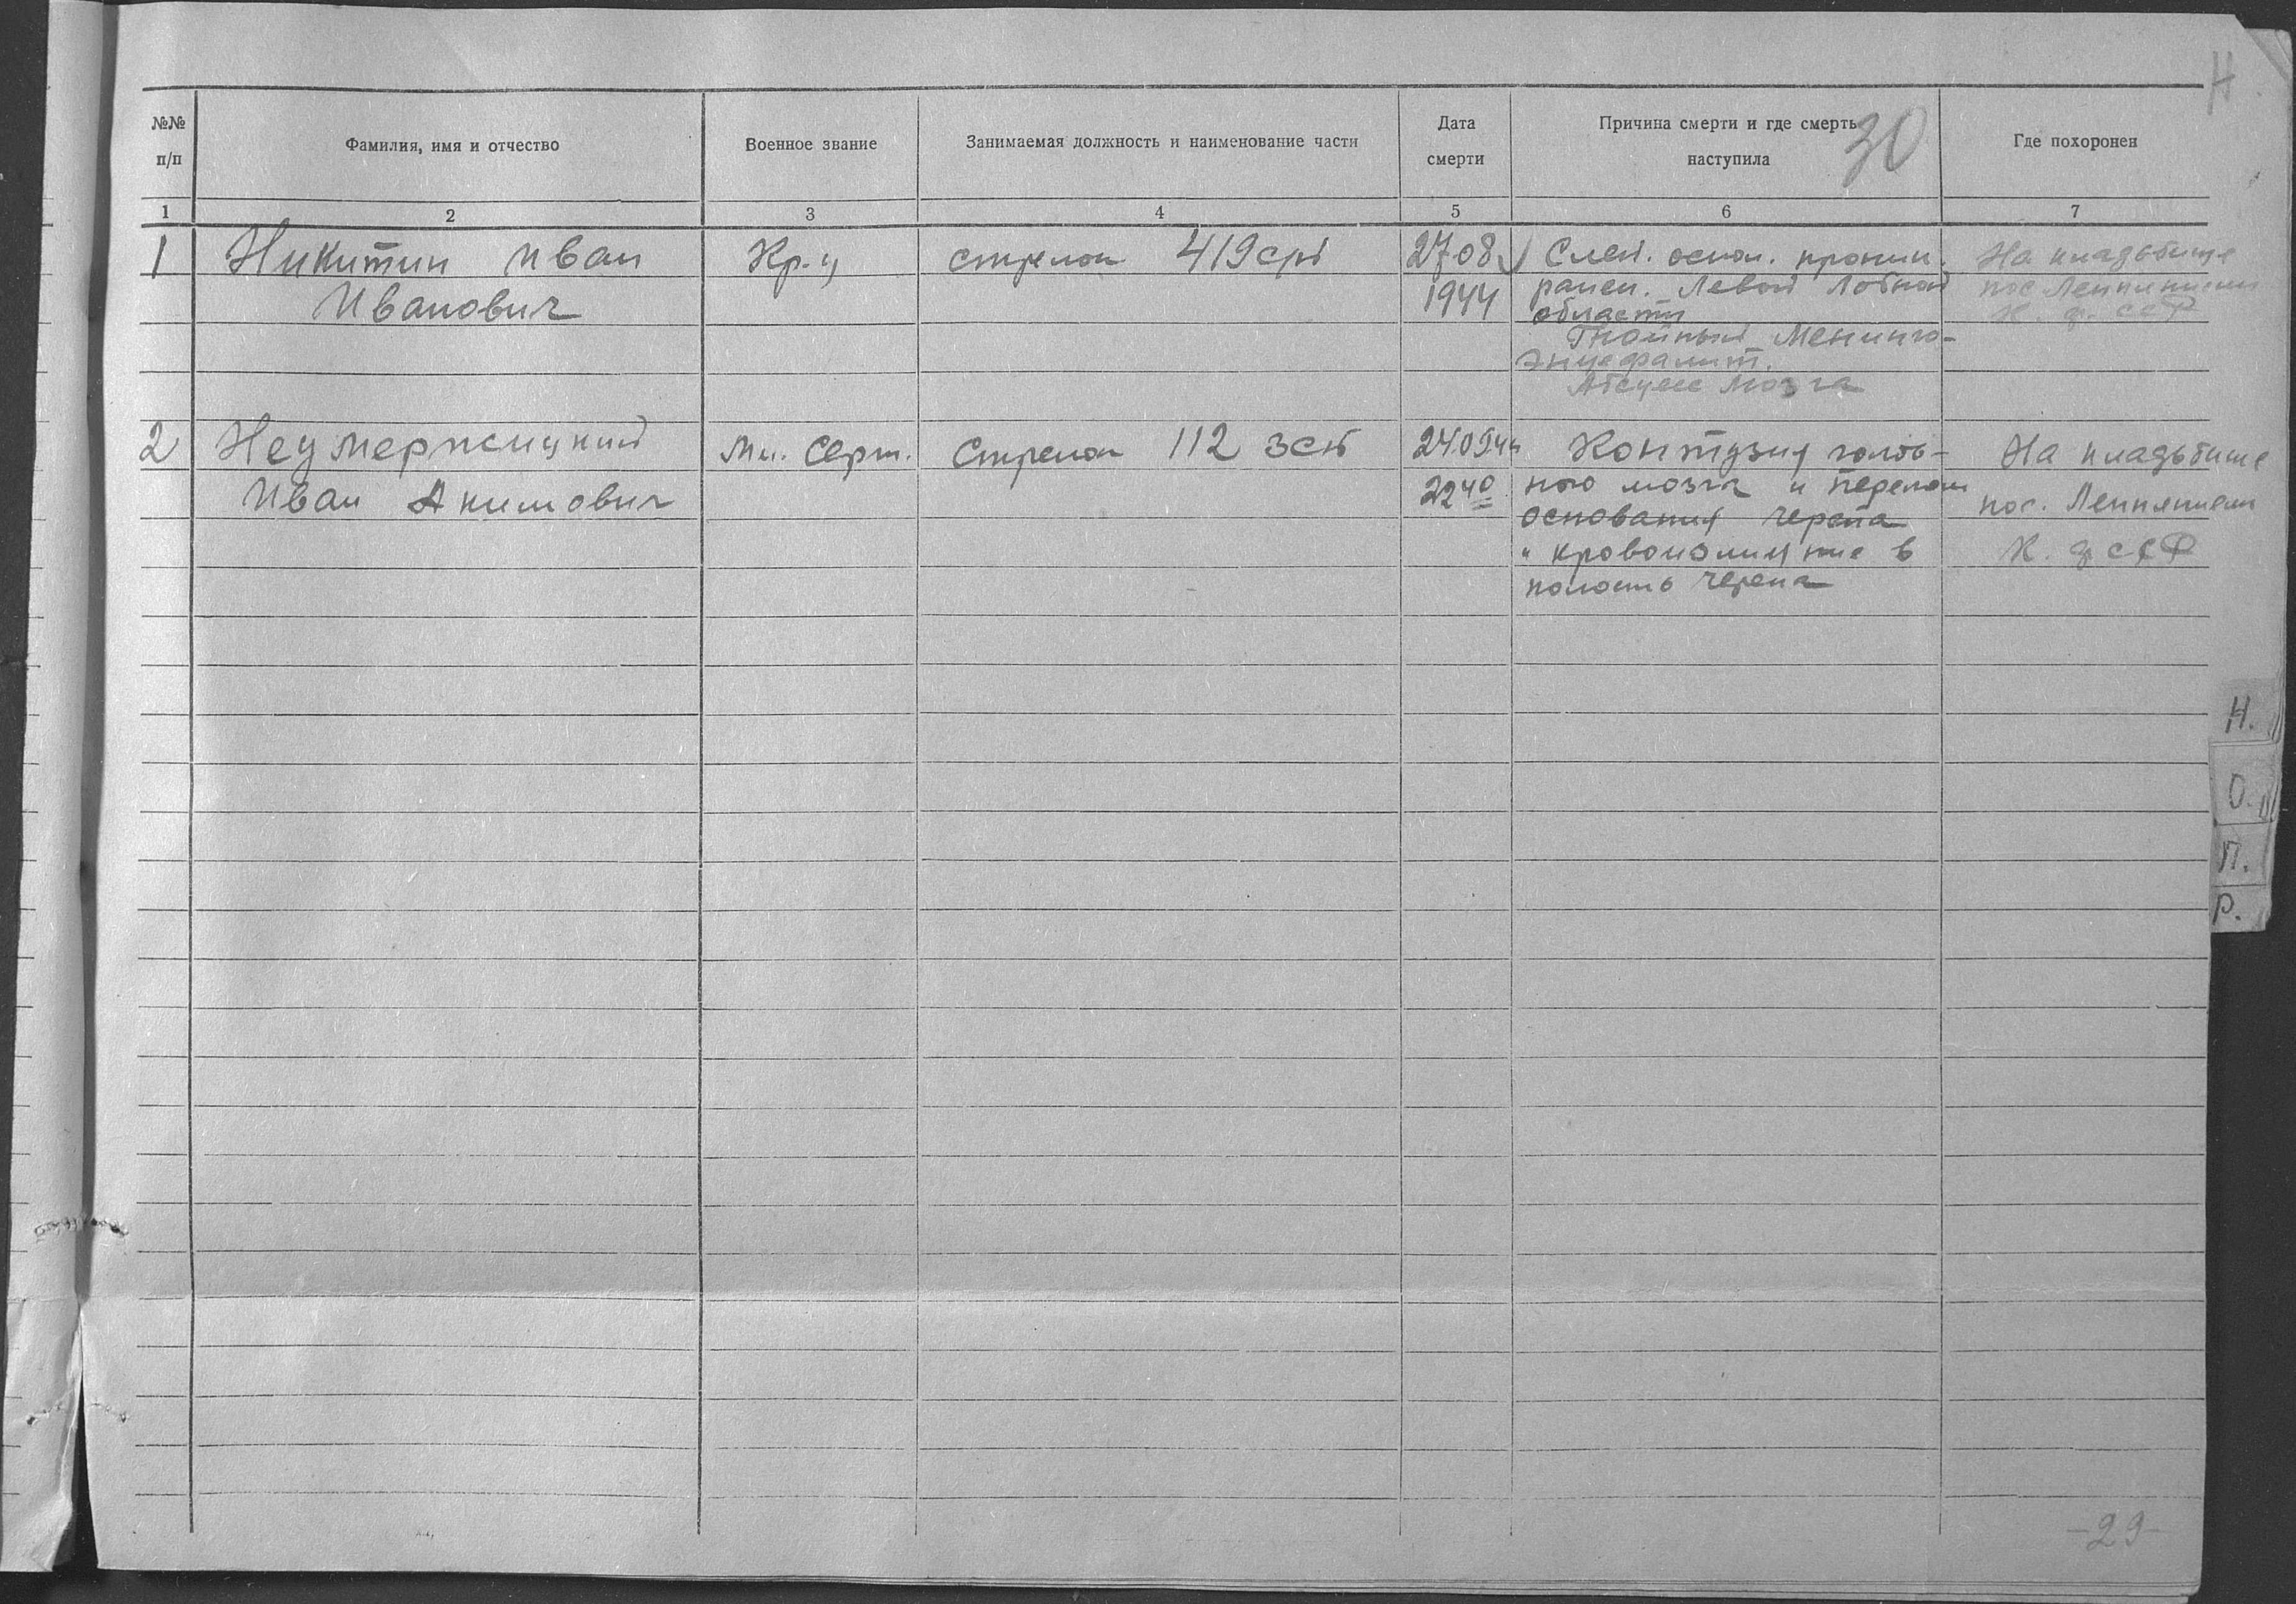 Н
30
№№ п/п
Фамилия, имя и отчество
Военное звание
Занимаемая должность и наименование части
Дата смерти
Причина смерти и где смерть наступила
Где похоронен
1 2 3 4 5 6 7
1 Никитин Иван Кр-ц стрелок 419 сп 27.08 Слеп. оскол. проник. На кладбище
Иванович 1944 ранен. левой лобной пос. Леппяниеми
области К. ф. ССР
Гнойный менинго-
энцефалит.
Абсцесс мозга
2 Неумержицкий Мл. Серж. Стрелок 112 зсп 24.09.44 Контузия голов- На кладбище
Иван Акимович 22 40 ного мозга и перелом пос. Леппяниеми
основания черепа К. ф ССР
" кровоизлияние в
полость черепа
Н.
О.
П.
Р.
-29-